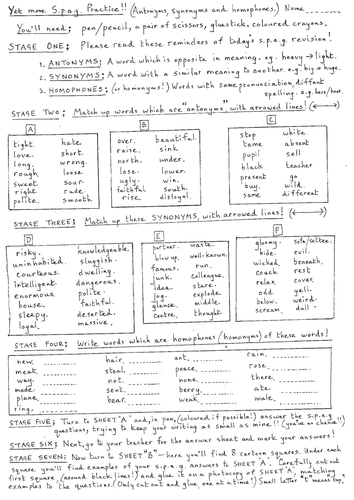 Yet more S.p.a.g. Practice!! (Antonyms, synonyms and homophones.) Name
You'll need: pen/pencil, a pair of scissors, gluestick, coloured crayons.
STAGE ONE: Please read these reminders of today's s.p.a.g. revision!
1. ANTONYMS: A word which is opposite in meaning. eg. heavy → light.
2. SYNONYMS: A word with a similar meaning to another. e.g. big → huge.
3. HOMOPHONES: (or homonyms!) Words with same pronunciation, different
spelling. e.g. here/hear.
STAGE TWO: Match up words which are "antonyms" with arrowed lines!
A
tight. hate.
love. short.
long. wrong.
rough. loose
sweet. sour.
right. rude.
polite. smooth
B
over. beautiful.
raise. sink.
north. under.
lose. lower.
ugly. win.
faithful south.
rise. disloyal.
C
stop white
tame absent
pupil sell
black teacher
present go
buy. wild.
same different
STAGE THREE: Match up these SYNONYMS, with arrowed lines!
D
risky. knowledgeable.
uninhabited. sluggish.
courteous. dwelling.
intelligent dangerous.
enormous polite.
house. faithful.
sleepy. deserted.
loyal. massive.
E
partner. waste.
blow up. well-known.
famous. run.
junk. colleague.
idea. stare.
jog. explode.
glance. middle.
centre. thought.
F
gloomy. sofa/settee.
hide. evil.
wicked. beneath.
coach rest
relax cover.
odd. yell.
below. weird.
scream. dull.
STAGE FOUR: Write words which are homophones (homonyms) of these words!
new. hair. ant. rain.
meat. steal. peace. rose.
way. not. none. there.
made. sent. berry. ate.
plane. bear. weak. male.
ring.
STAGE FIVE: Turn to SHEET "A" and, in pen, (coloured if possible!) answer the s.p.a.g
questions, trying to keep your writing as small as mine!!
STAGE SIX: Next, go to your teacher for the answer sheet and mark your answers!
STAGE SEVEN: Now turn to SHEET "B" - here you'll find 8 cartoon squares. Under each
square you'll find examples of your s.p.a.g. answers to SHEET A. Carefully cut out
first square, (around black lines!) and glue it as a photocopy of SHEET "A", matching
examples to the questions. (Only cut out and glue, one at a time!) Small letter "t" means top."